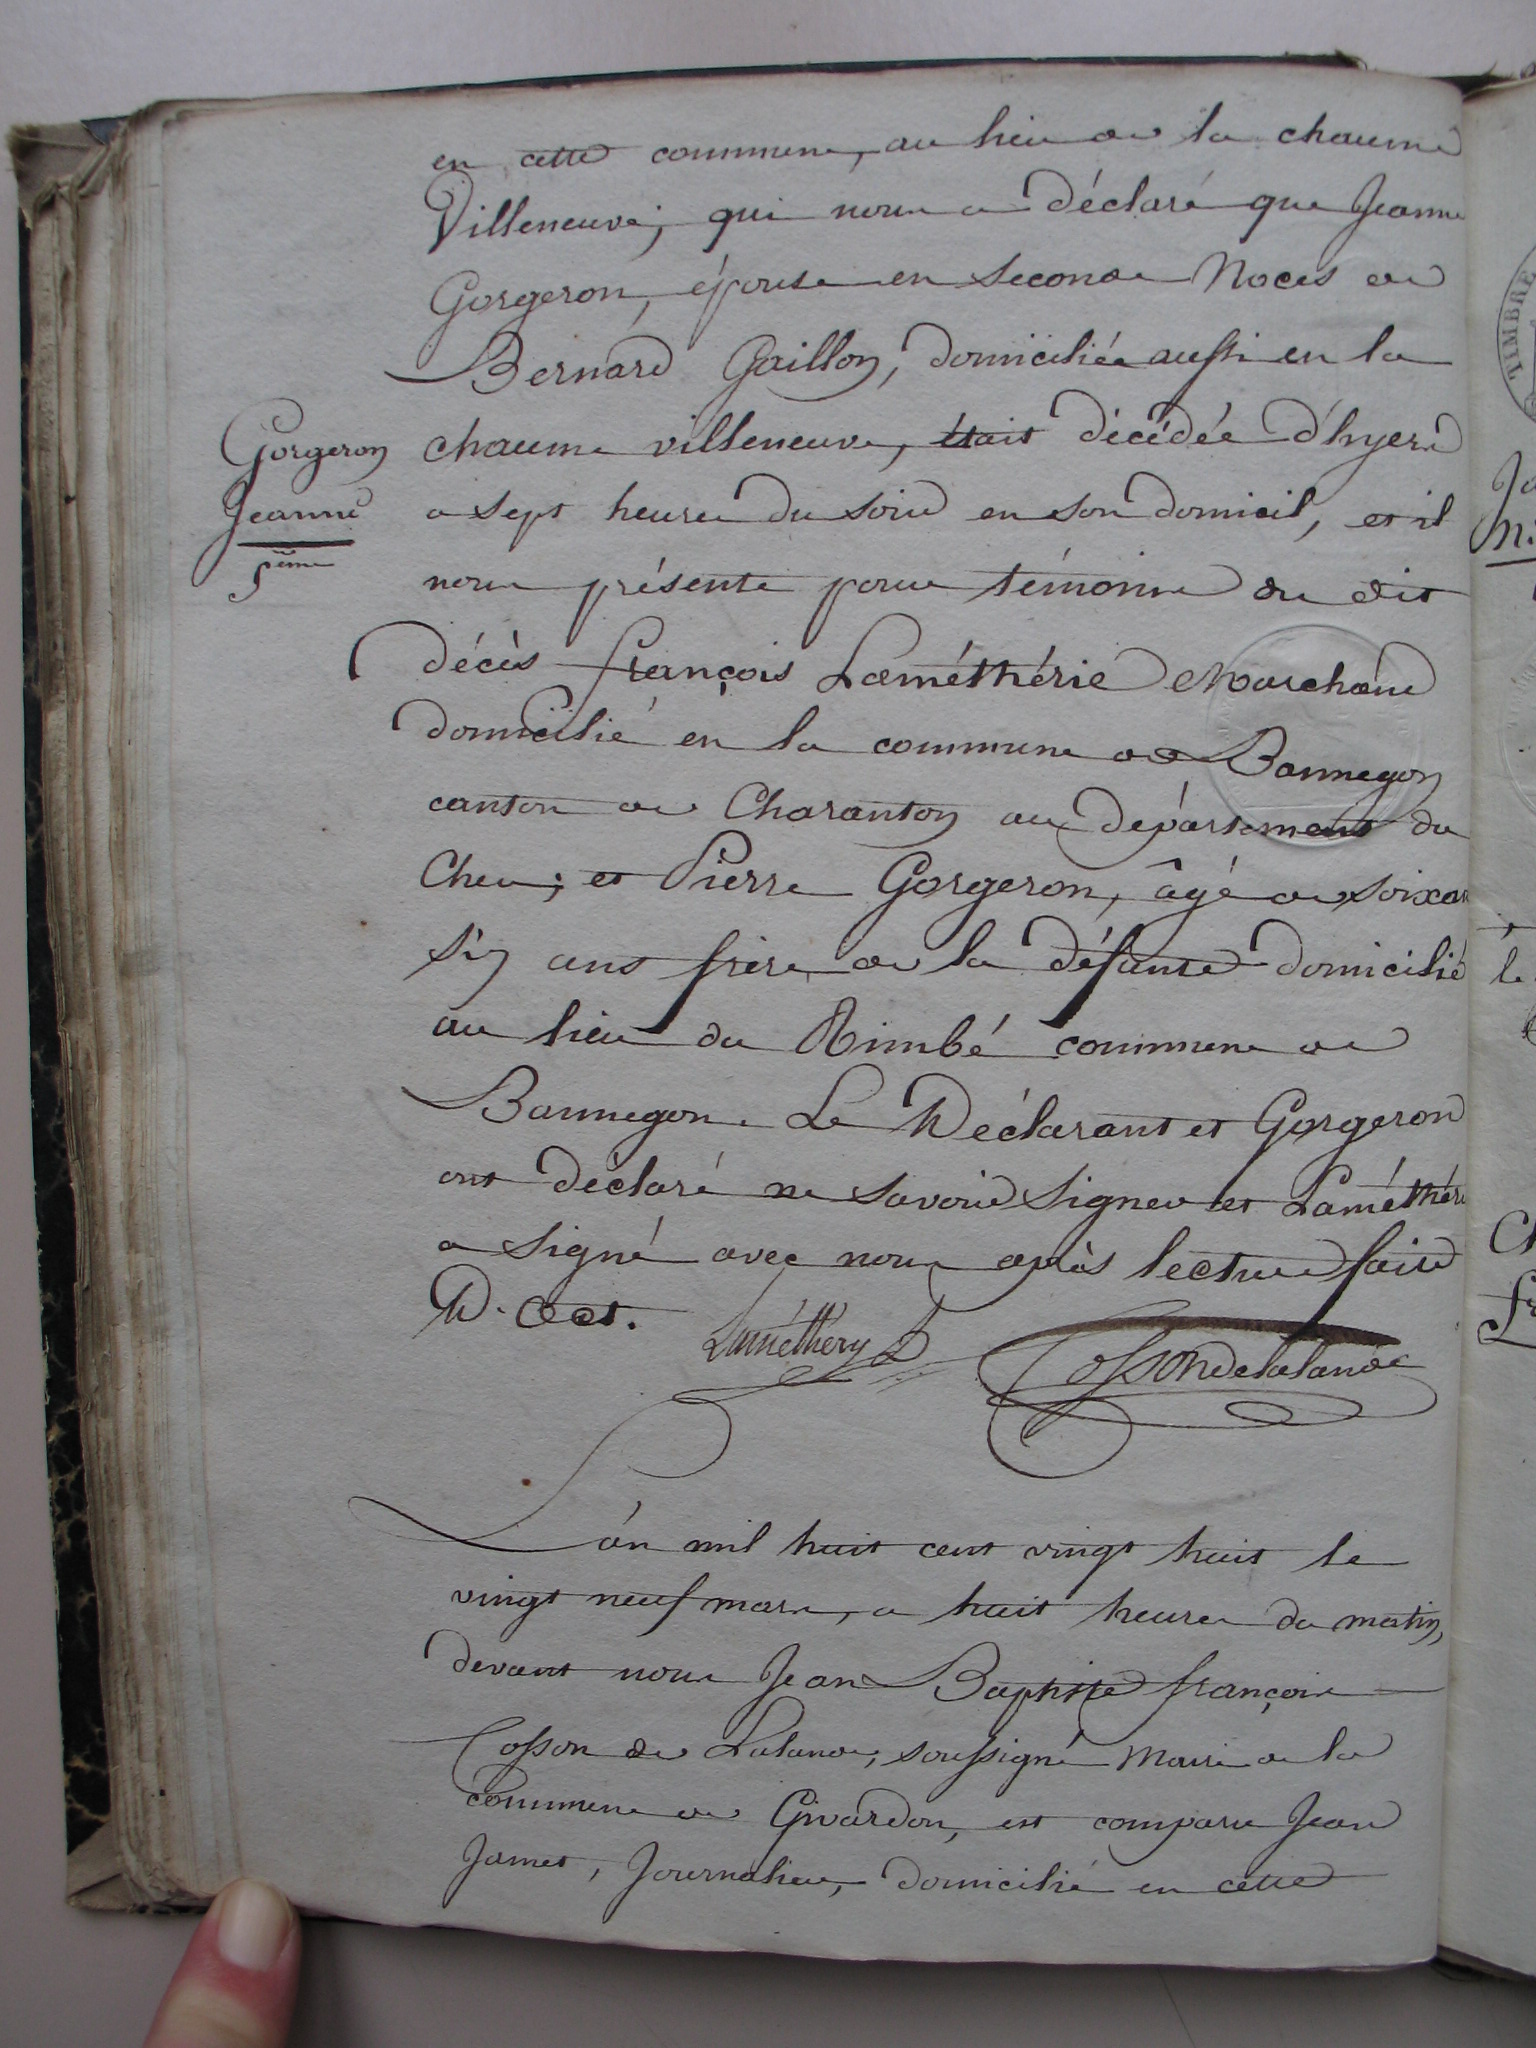 en cette commune, au lieu de la chaume
Villeneuve; qui nous a déclaré que Jeanne
Gorgeron, épouse en seconde Noces de
Bernard Gaillon, domiciliée aussi en la
Gorgeron
Jeanne
5ème
chaume villeneuve, était décédée d'hyere
a sept heures du soir en son domicil, et il
nous présente pour témoins du dit
décès françois Laméthérie Marchand
domicilié en la commune de Bannegon
canton de Charanton au département du
Cher; et Pierre Gorgeron, âgé de soixan
six ans frère de la défunte domicilié
au lieu du Rimbé commune de
Bannegon. Le Déclarant et Gorgeron
ont déclaré ne savoir signer et Laméthéri
a signé avec nous après lecture faite
D. Act.
Laméthery
Cosson de lalande
L'án mil huit cent vingt huit le
vingt neuf mars, a huit heures du matin,
devant nous Jean Baptiste françois
Cosson de Lalande, soussigné Maire de la
commune de Givardon, est comparu Jean
Jamet, Journalier, domicilié en cette
TIMBRE
le